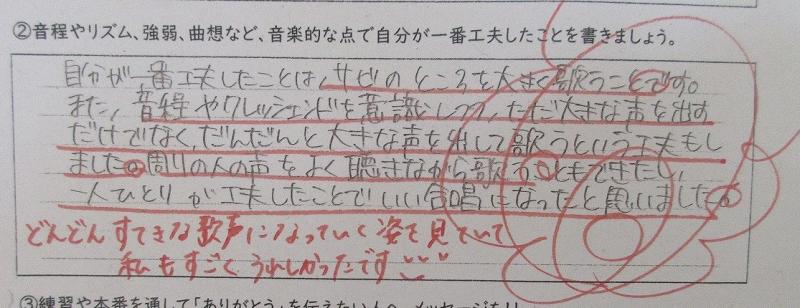 ②音程やリズム、強弱、曲想など、音楽的な点で自分が一番工夫したことを書きましょう。
自分が一番工夫したことは、サビのところを大きく歌うことです。
また、音程やクレッシェンドを意識しつつ、ただ大きな声を出す
だけでなく、だんだんと大きな声を出して歌うという工夫もし
ました。周りの人の声をよく聴きながら歌うこともできたし、
一人ひとりが工夫したことでいい合唱になったと思いました。
どんどんすてきな歌声になっていく姿を見ていて
私もすごくうれしかったです
③練習や本番を通して「ありがとう」を伝えたい人へ、メッセージを!!